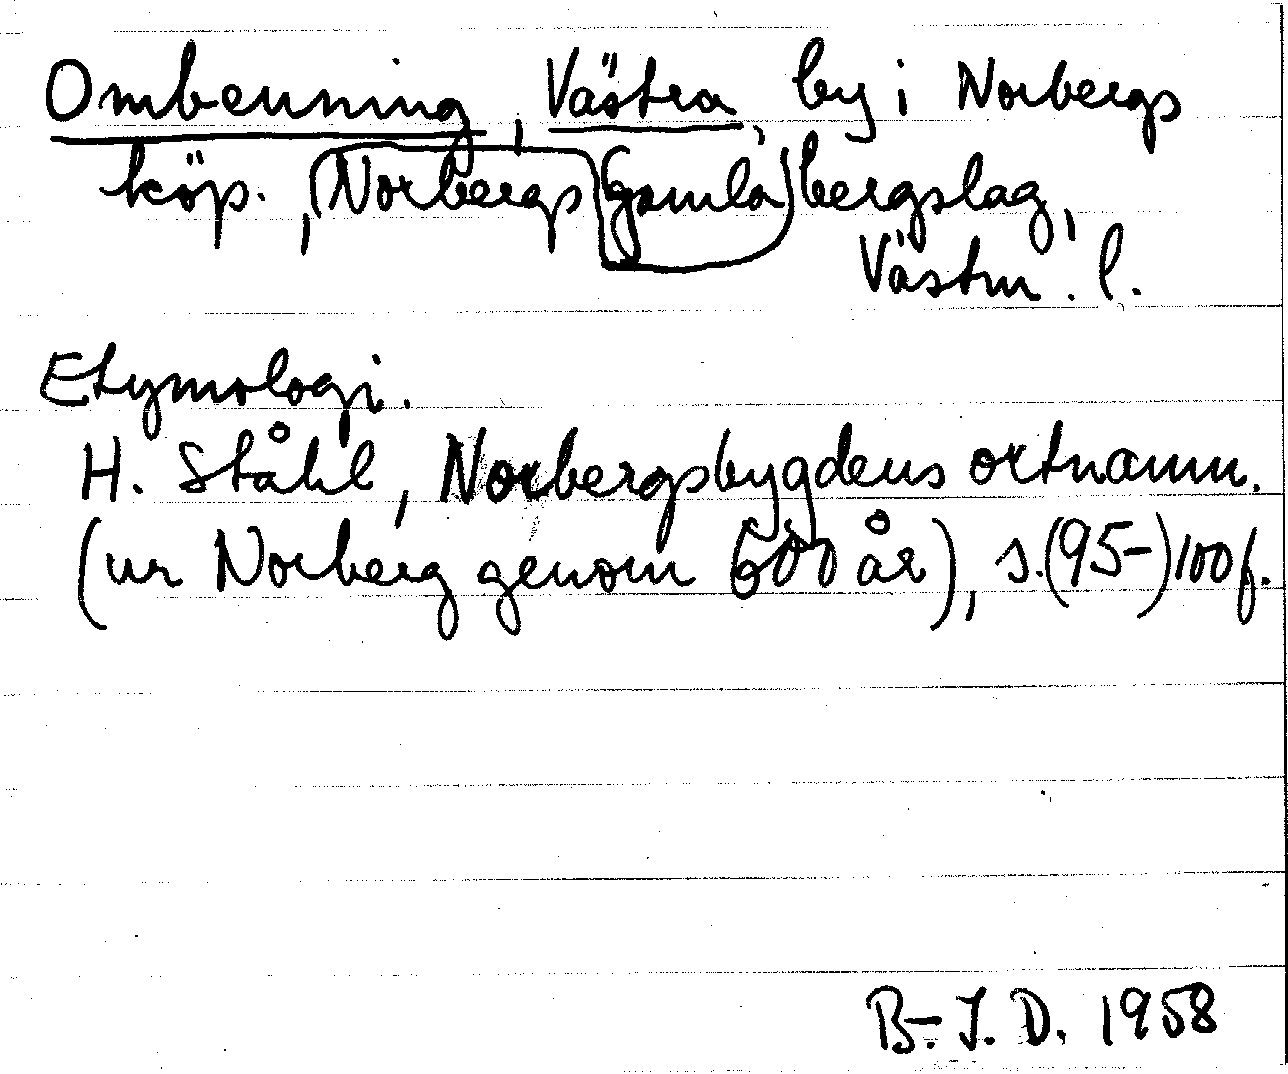 Ombenning, Västra, by i Norbergs
köp., Norbergs (gamla) bergslag,
Västm. l.
Etymologi.
H. Ståhl, Norbergsbygdens ortnamn.
(ur Norberg genom 600 år), s. (95-) 100 f.
B.-I. D. 1958